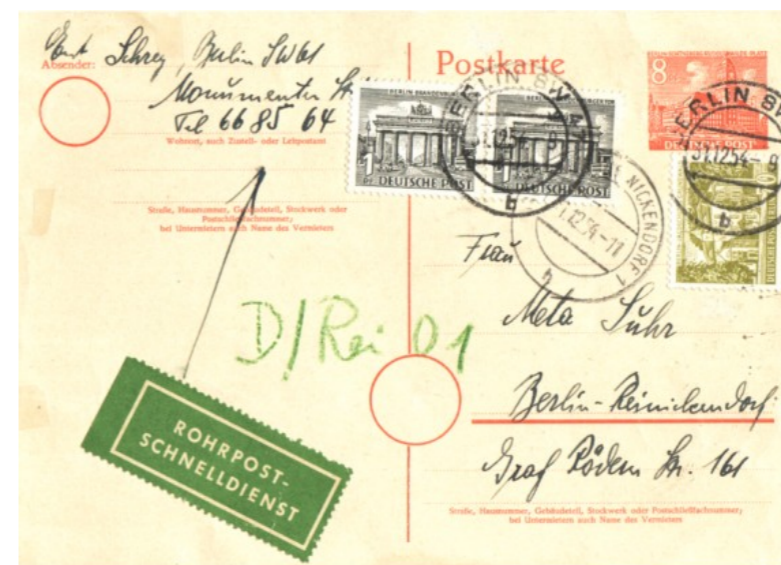 Absender: Schrey, Berlin SW61
Monumenten Str
Tel 66 85 64
Wohnort, auch Zustell- oder Leitpostamt
Straße, Hausnummer, Gebäudeteil, Stockwerk oder
Postschließfachnummer;
bei Untermietern auch Name des Vermieters
Postkarte
8
BERLIN BRANDENBURGER
1
DEUTSCHE POST
1
DEUTSCHE POST
BERLIN SW
12.54
b
BERLIN S
31.12.54-9
b
NICKENDORF 1
12.54-11
Frau
Meta Suhr
D/Rei 01
Berlin-Reinickendorf
Graf Rödern Str. 161
ROHRPOST-
SCHNELLDIENST
Straße, Hausnummer, Gebäudeteil, Stockwerk oder Postschließfachnummer;
bei Untermietern auch Name des Vermieters